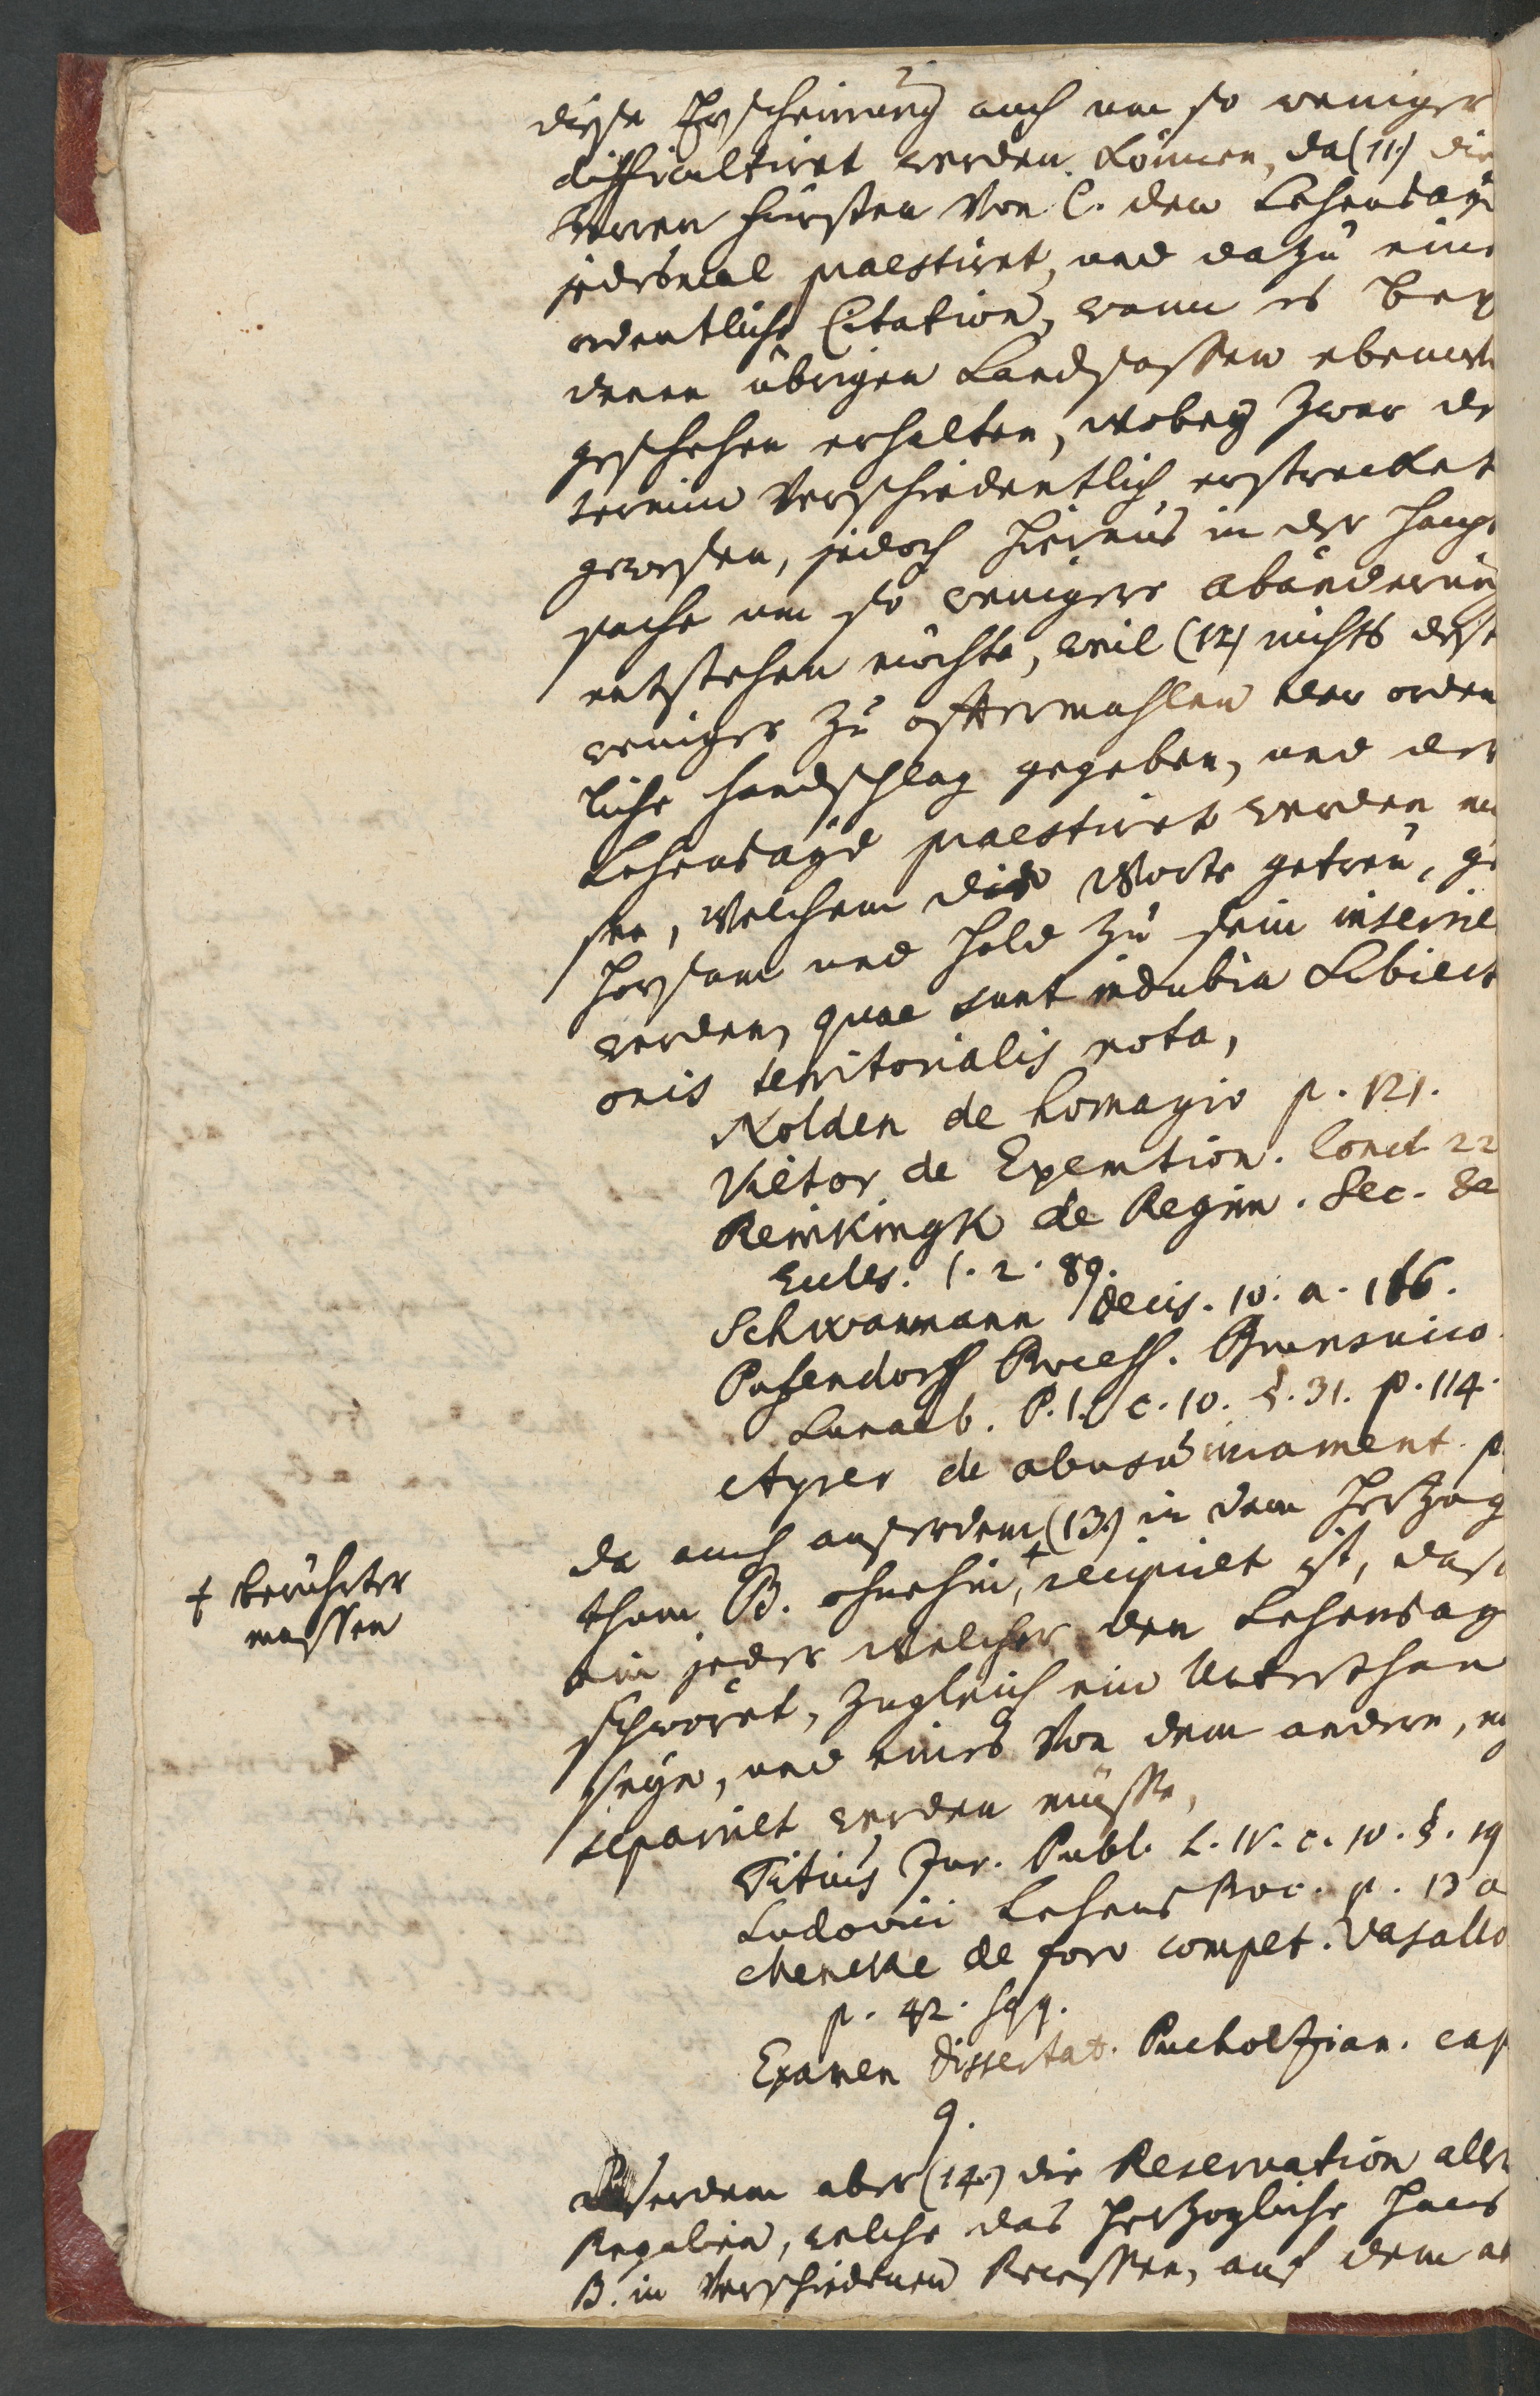 diese Erscheinung auch um so weniger
difficultiret werden können, da (11.) die
Herren Fürsten von C. den Lehensayd
jedesmal praestiret, und dazu eine
ordentliche Citation, wann es bey
denen übrigen Landsassen ebenerst
geschehen erhalten, wobey zwar de
termin verschiedentlich erstrecket
gewesen, jedoch hieraus in der Haupt
sache um so weniger abänderung
entstehen möchte, weil (12) nichts desto
weniger zu öfftermahlen der orden
liche Handschlag gegeben, und der
Lehensayd praestiret werden mü
sen, welchem die Worte getreu, ge
horsam und hold zu sein inserire
werden, quae sunt indubia Subiecti
onis territorialis nota,
Nolden de homagio p. 121.
Vietor de Exemtion. Concl. 22
Reinkingk de Regim. Sec. &
Eccles. 1. 2. 89.
Schwanmann decis. 10. a. 166.
Pufendorff Process. Brunsuico
Luneb. P. 1. c. 10. §. 31. p. 114.
Ayrer de abusu iurament. p.
da auch ausserdem (13.) in dem Herzog
thum B. ohnehin, + recipiret ist, dass
ein jeder welcher den Lehensayd
schwöret, zugleich ein Unterthan
seye, und eines von dem andern, n
separiret werden müsse,
+ berührter
massen
Titius Jur. Publ. L. IV. c. 10. §. 19
Ludovici Lehens Proc. p. 13 a
Mencke de foro compet. Vasallo
p. 42. sqq.
Examen dissertat. Bucholzian. cap
9.
Ausserdem aber (14.) die Reservation aller
Regalien, welche das Herzogliche Haus
B. in verschiedenen Recessen, auf dem